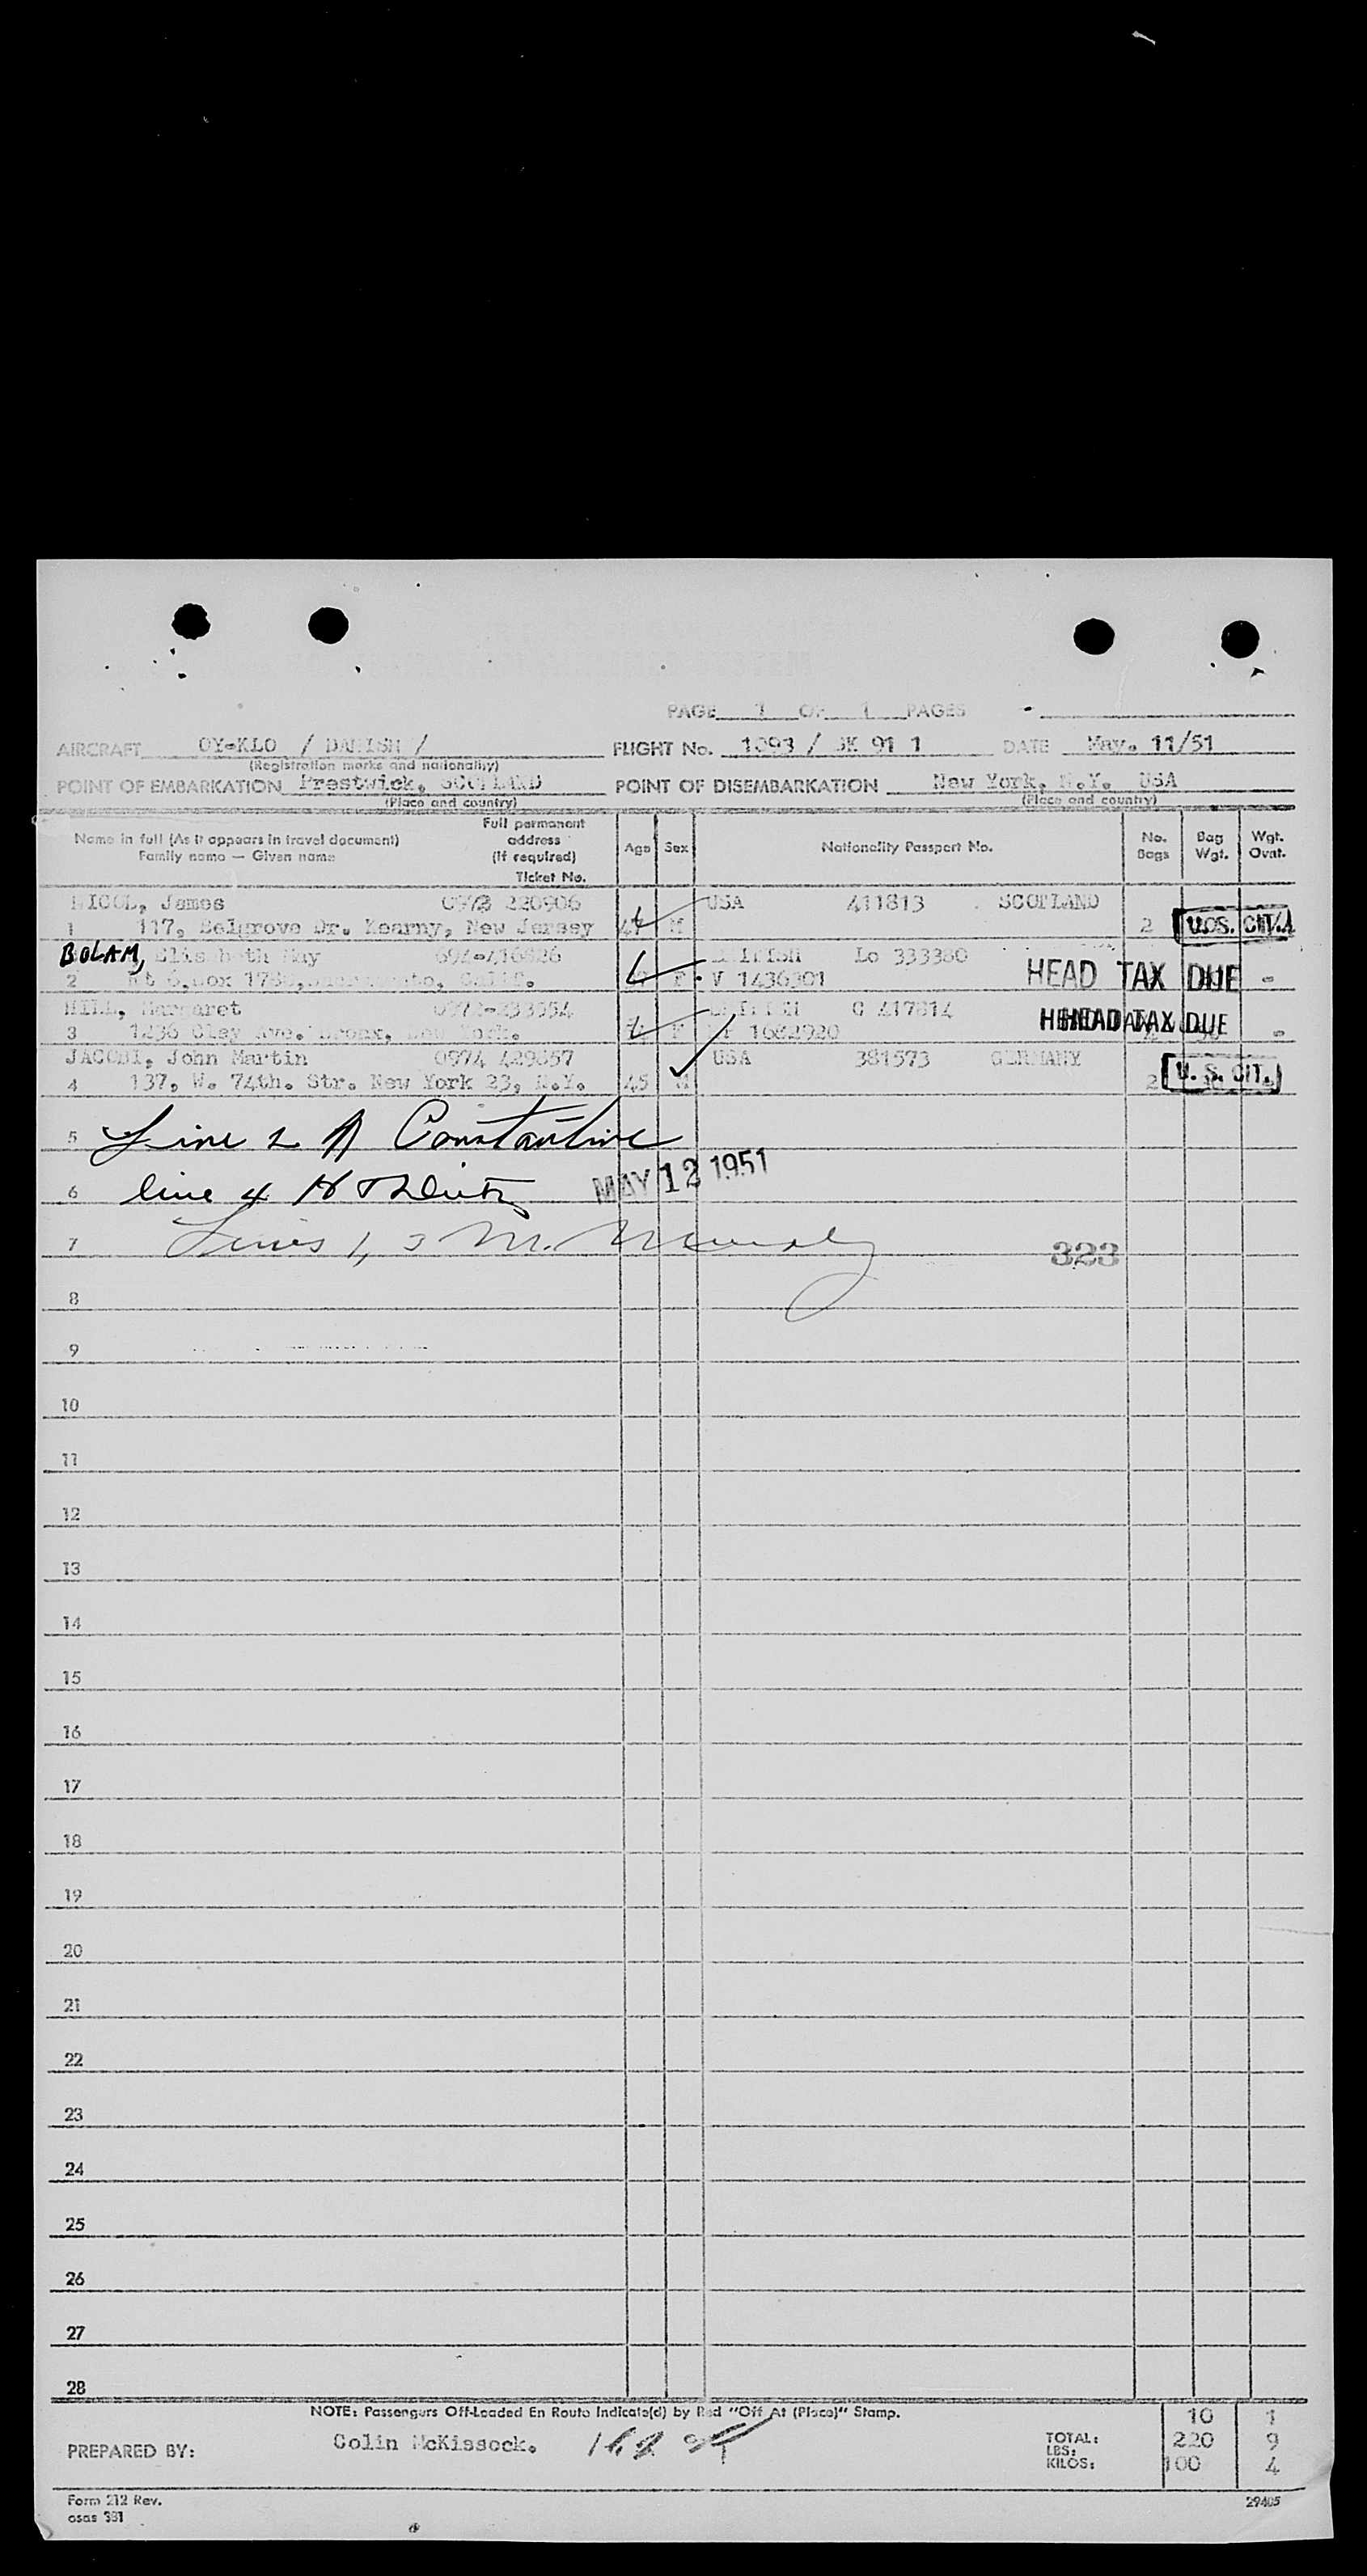 PAGE 1 OF 1 PAGES
AIRCRAFT OY-KLO / DANISH / FLIGHT No. 1093 / SK 91 1 DATE May. 11/51
(Registration marks and nationality)
POINT OF EMBARKATION Prestwick, SCOTLAND POINT OF DISEMBARKATION New York, N.Y. USA
(Place and country) (Place and country)
Name in full (As it appears in travel document) Family name — Given name Full permanent address (If required) Ticket No. Age Sex Nationality Passport No. No. Bags Bag Wgt. Wgt. Ovnt.
NICOL, James 0973 220906 USA 411813 SCOTLAND
1 117, Belgrove Dr. Kearny, New Jersey 47 M 2 U.S. CIT.
BOLAM, Elisabeth May 694-416826 BRITISH Lo 333360
2 Rt 6, Box 1786, Sacramento, Calif. F V 1436301 HEAD TAX DUE -
HILL, Margaret BRITISH G 417814
3 1236 Clay Ave. Bronx, New York. F 1682920 HEAD TAX DUE -
JACOBI, John Martin 0974 429857 USA 381573 GERMANY
4 137, W. 74th. Str. New York 23, N.Y. 45 M 2 U. S. CIT.
5 Line 2 A Constantine
6 line 4 MAY 12 1951
7 Lines 1, 3 M.
323
8
9
10
11
12
13
14
15
16
17
18
19
20
21
22
23
24
25
26
27
28
NOTE: Passengers Off-Loaded En Route Indicate(d) by Red "Off At (Place)" Stamp. 10 1
PREPARED BY: Colin McKissock. TOTAL:
LBS: 220 9
KILOS: 100 4
Form 212 Rev. 29405
osas 331